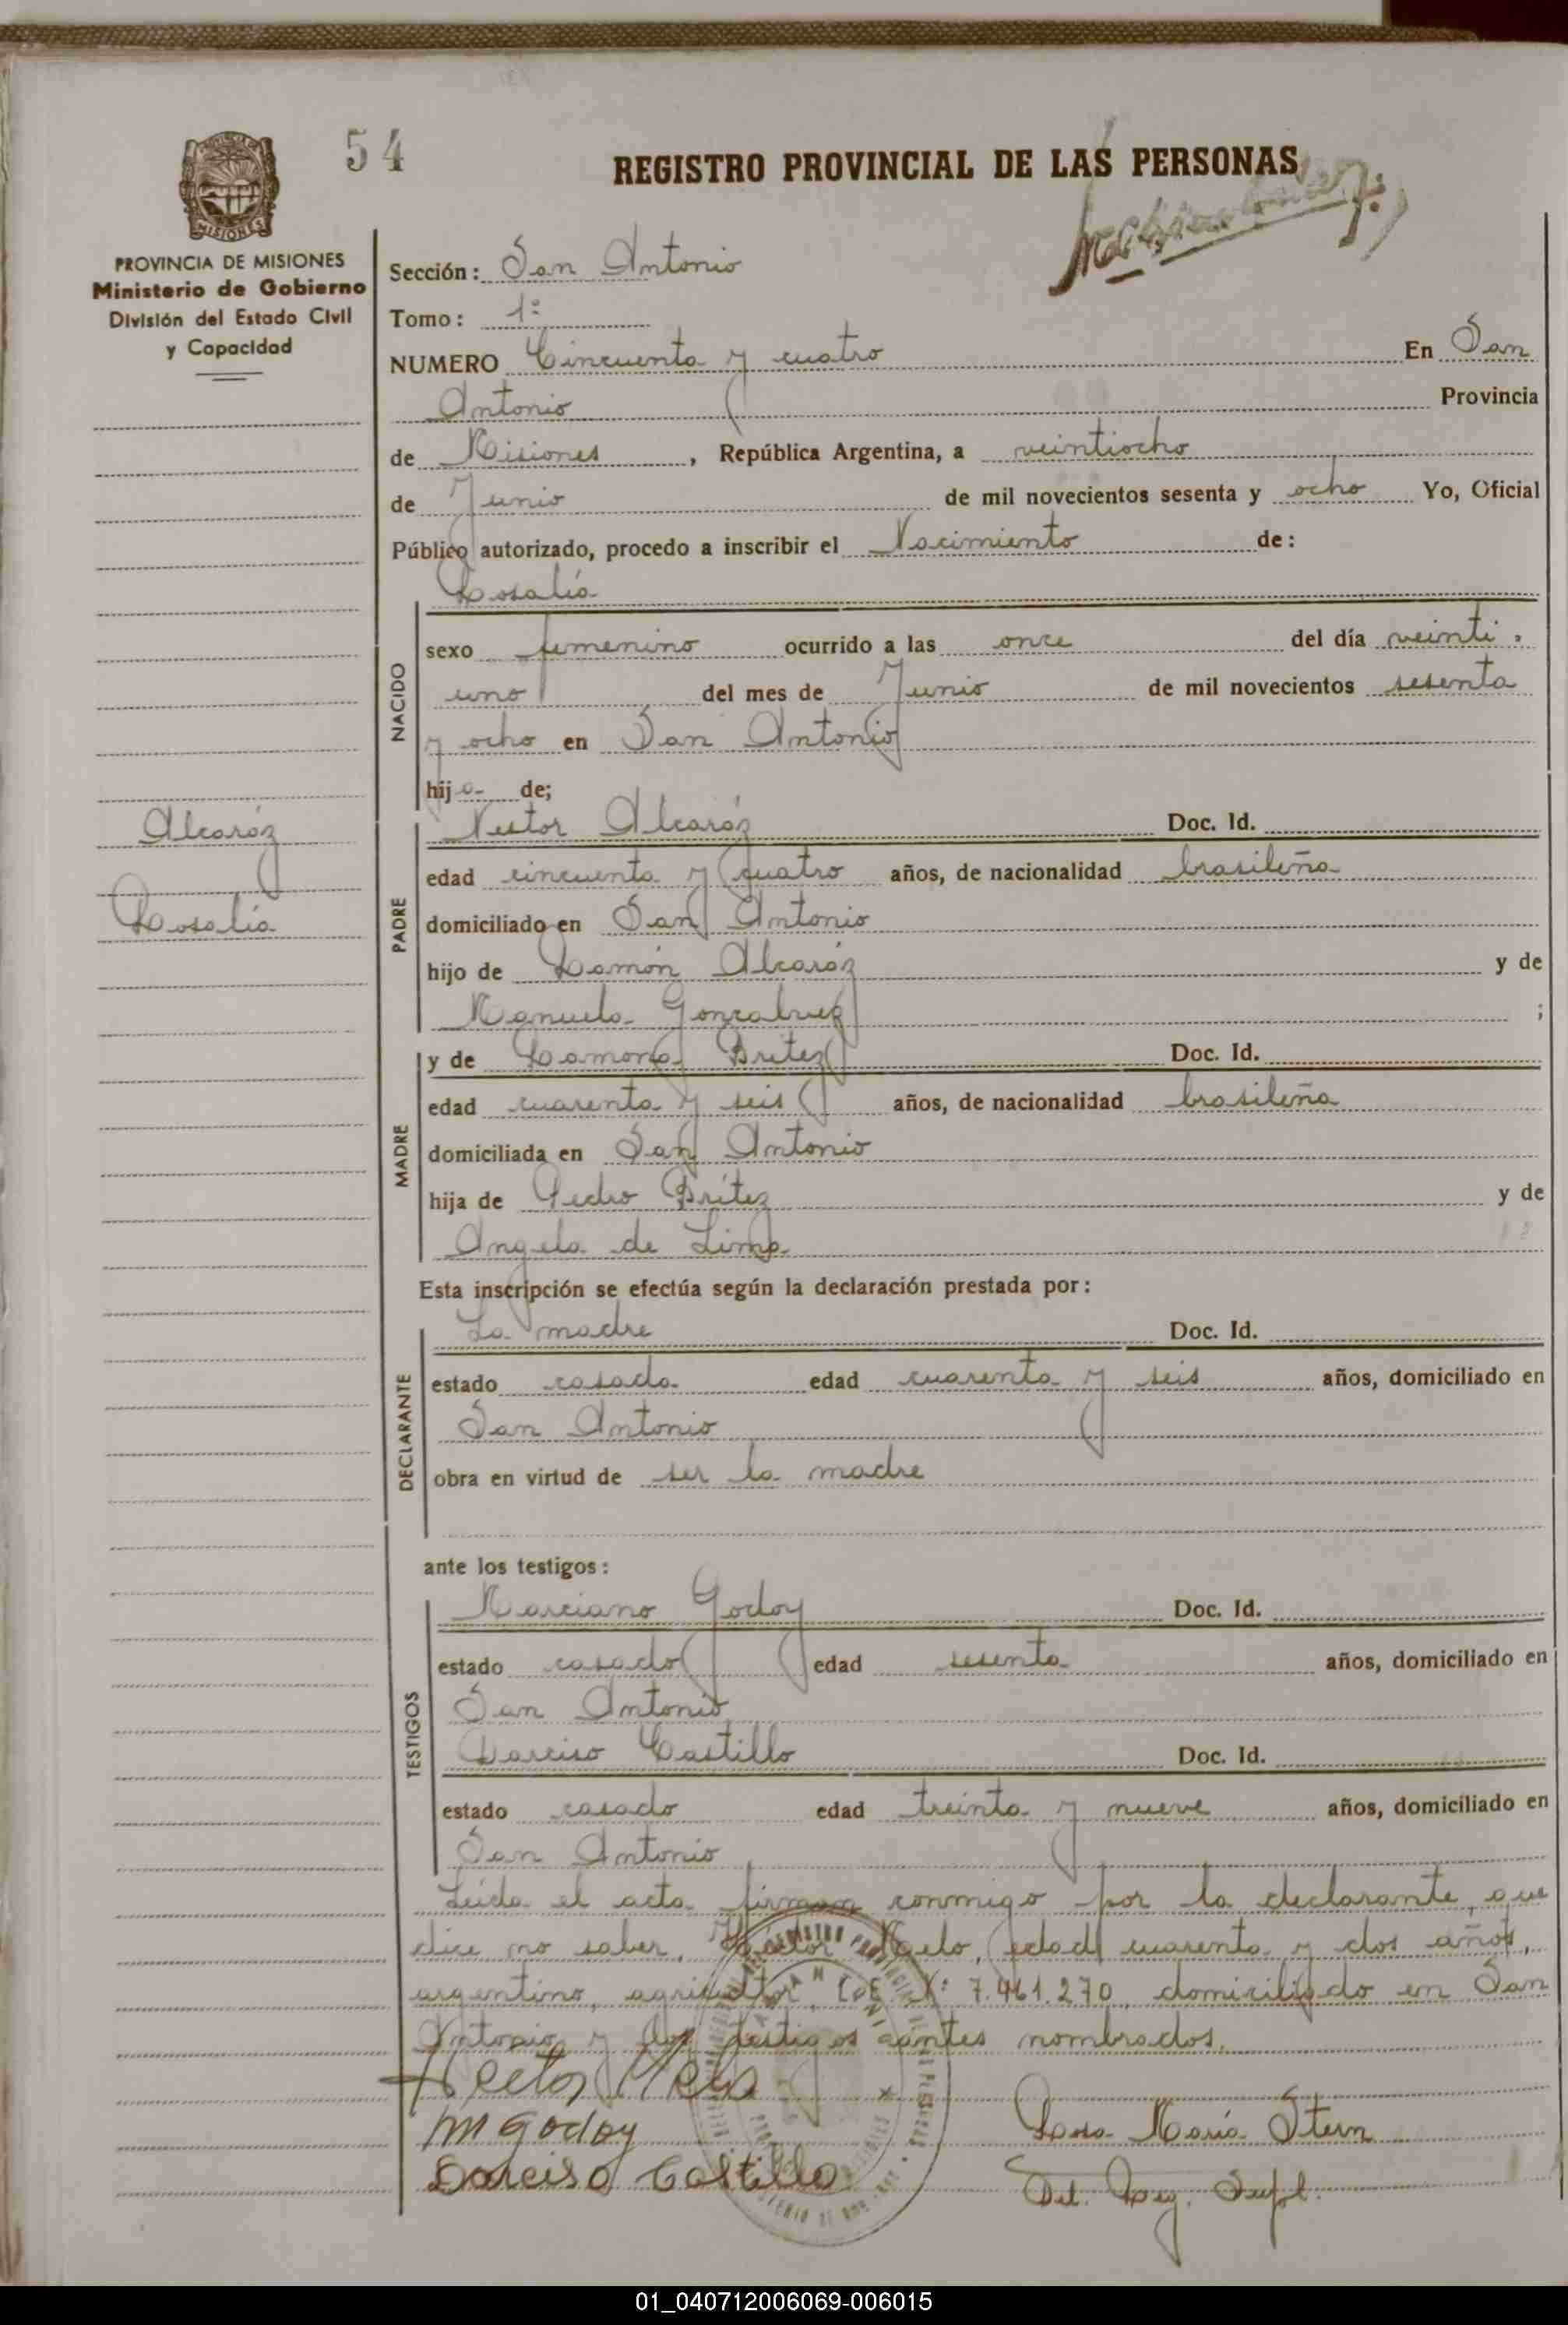 54
REGISTRO PROVINCIAL DE LAS PERSONAS
MISIONES
PROVINCIA DE MISIONES
Ministerio de Gobierno
División del Estado Civil
y Capacidad
Sección: San Antonio
Tomo: 1º
NUMERO Cincuenta y cuatro En San
Antonio Provincia
de Misiones, República Argentina, a veintiocho
de Junio de mil novecientos sesenta y ocho Yo, Oficial
Público autorizado, procedo a inscribir el Nacimiento de:
Rosalía
NACIDO
sexo femenino ocurrido a las once del día veinti-
uno del mes de Junio de mil novecientos sesenta
y ocho en San Antonio
hija de;
Alcaráz
Rosalía
PADRE
Nestor Alcaráz Doc. Id.
edad cincuenta y cuatro años, de nacionalidad brasileña
domiciliado en San Antonio
hijo de Ramón Alcaráz y de
Manuela Gonzalvez ;
MADRE
y de Ramona Britez Doc. Id.
edad cuarenta y seis años, de nacionalidad brasileña
domiciliada en San Antonio
hija de Pedro Brítez y de
Angela de Lima
Esta inscripción se efectúa según la declaración prestada por:
DECLARANTE
La madre Doc. Id.
estado casada edad cuarenta y seis años, domiciliado en
San Antonio
obra en virtud de ser la madre
ante los testigos:
TESTIGOS
Marciano Godoy Doc. Id.
estado casado edad sesenta años, domiciliado en
San Antonio
Darciso Castillo Doc. Id.
estado casado edad treinta y nueve años, domiciliado en
San Antonio
Leída el acta firman conmigo por la declarante, que
dice no saber, Héctor Melo, edad cuarenta y dos años,
argentino, agricultor, Nº 7.461.270, domiciliado en San
Antonio y los testigos antes nombrados.
Hector Melo
M Godoy
Darciso Castillo
Rosa María Stern
Del. Reg. Supl.
01_040712006069-006015